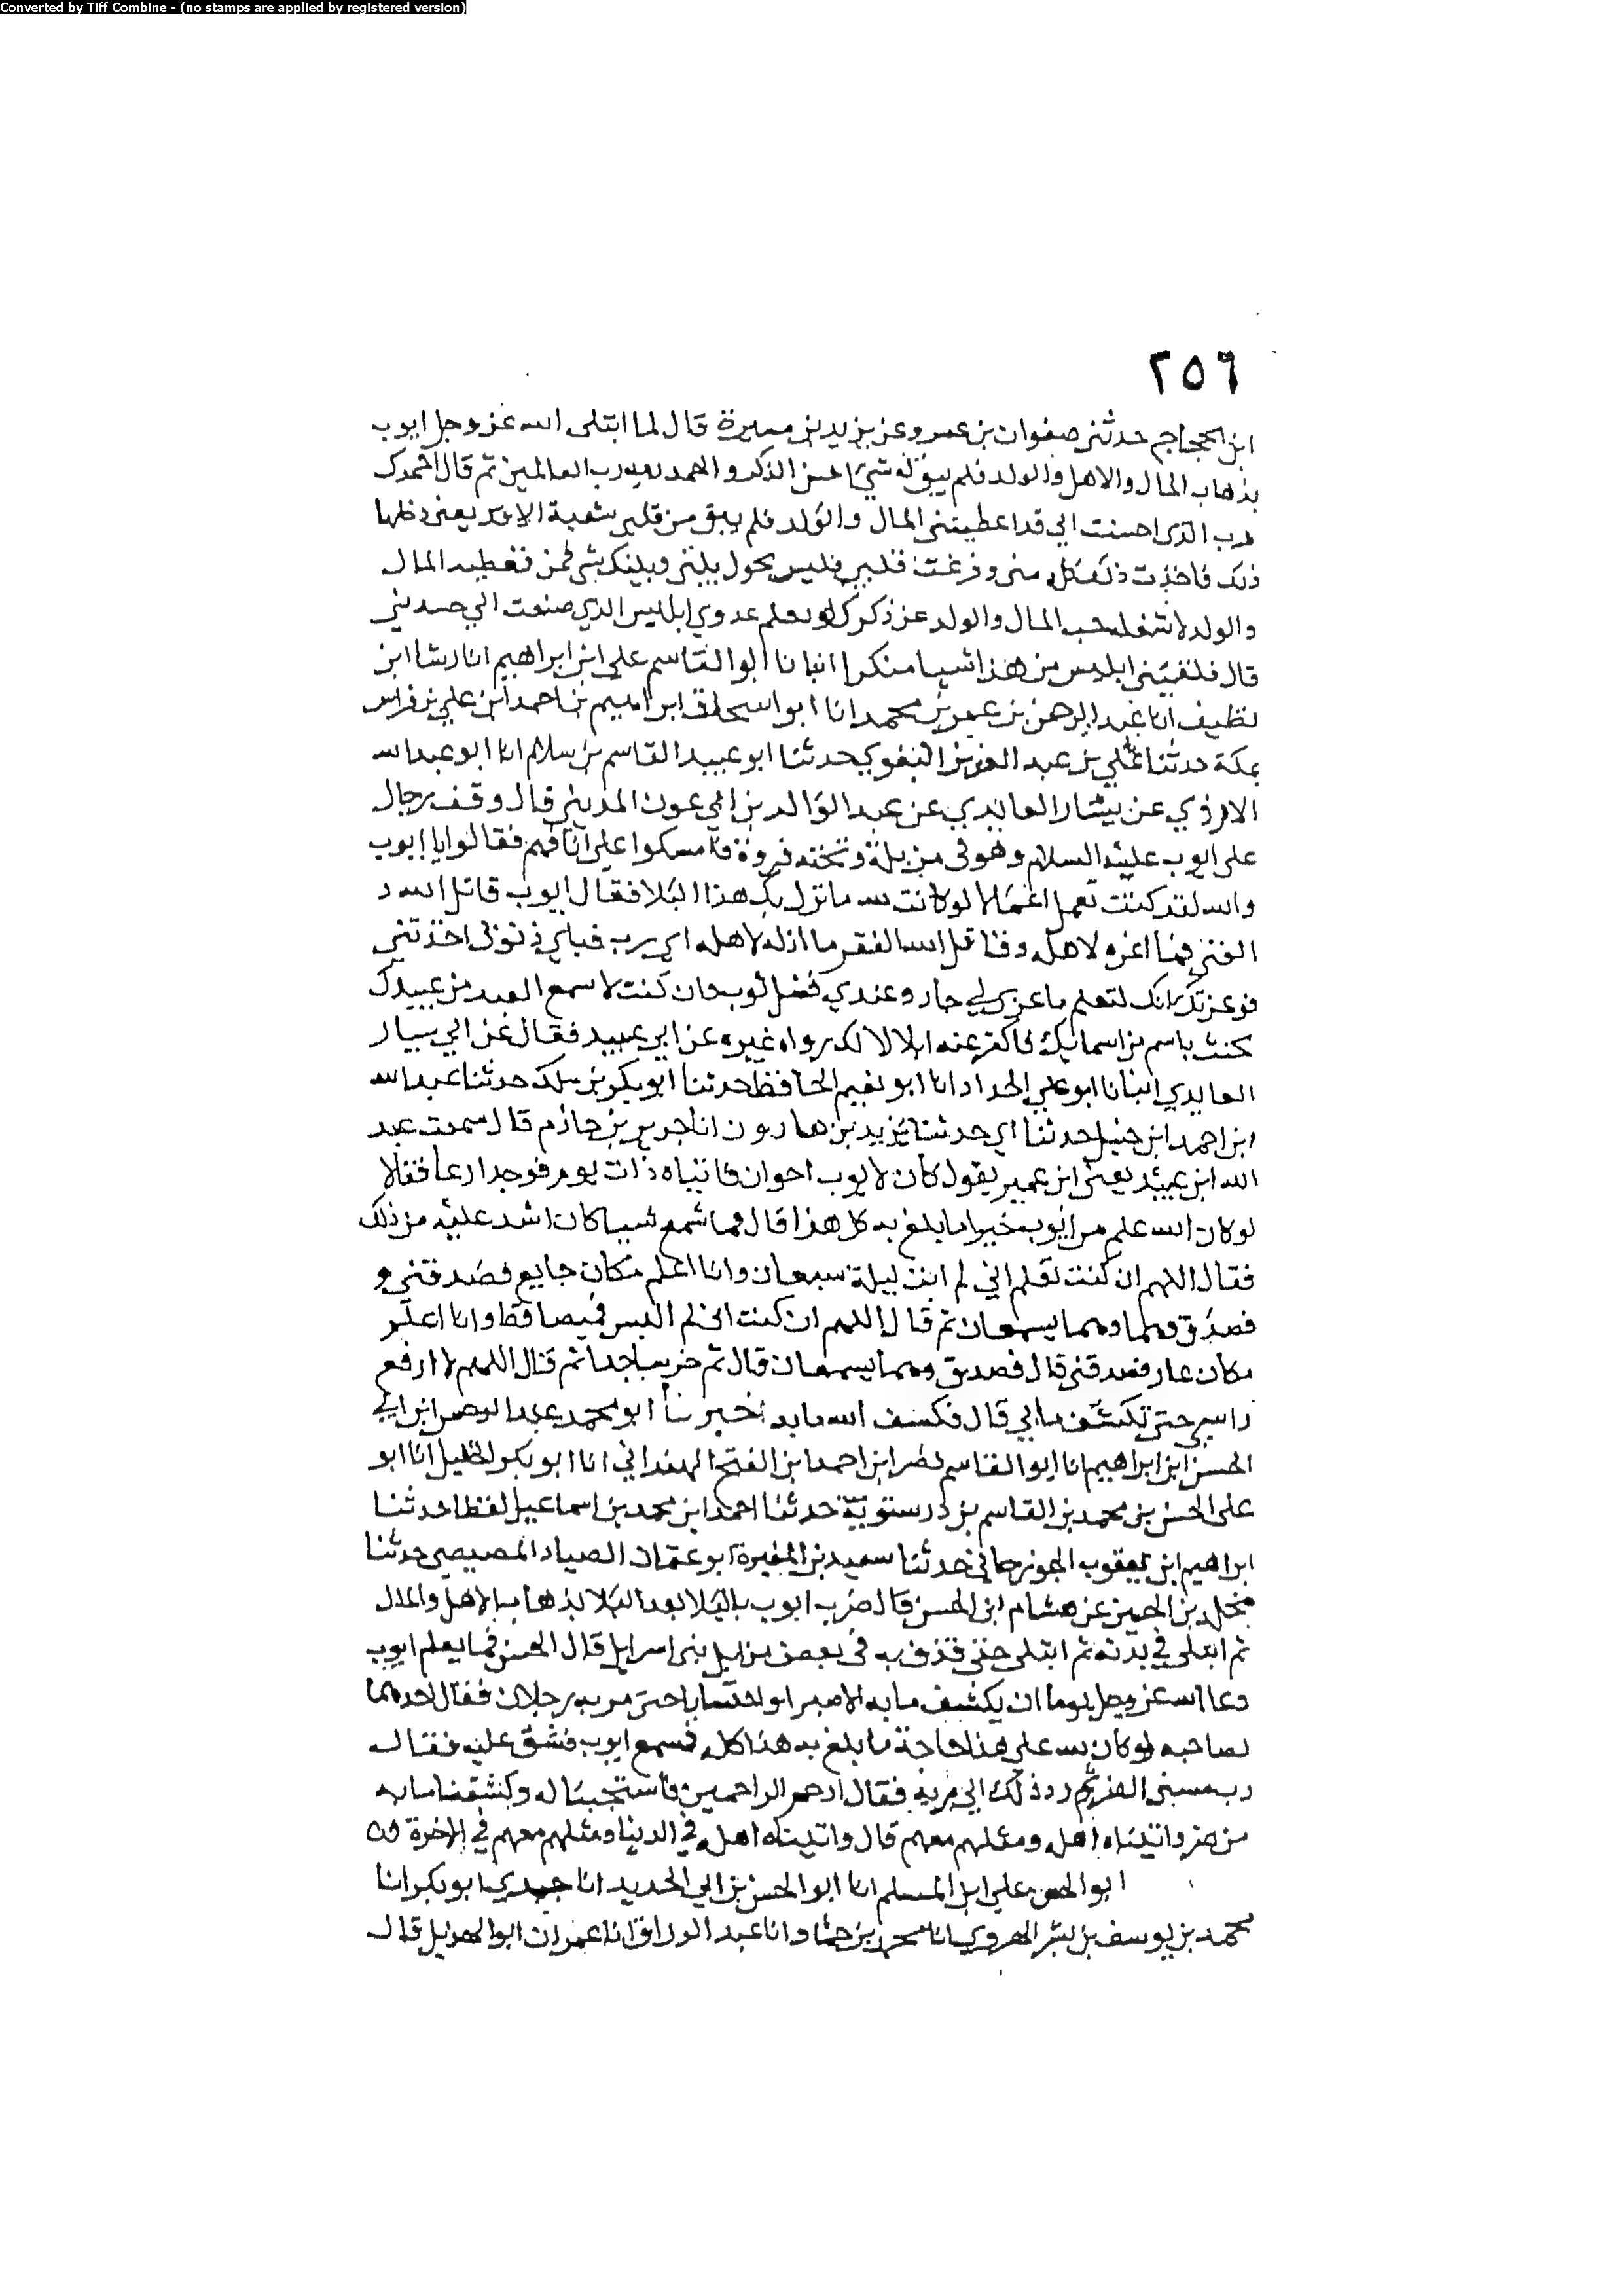 Converted by Tiff Combine - (no stamps are applied by registered version)
٢٥٦
ابن الحجاج حدثني صفوان بن عمرو عن يزيد بن ميسرة قال لما ابتلى الله عز وجل ايوب
بذهاب المال والاهل والولد فلم يبق له شي احسن الذكر والحمد لله رب العالمين ثم قال احمدك
رب الذي احسنت الي قد اعطيتني المال والولد فلم يبق من قلبي شعبة الا قد يعني دخلها
ذلك فاخذت ذلك كله مني وفرغت قلبي فليس يحول بيني وبينك شي فمن تعطيه المال
والولد لا شغله حب المال والولد عن ذكرك لو يعلم عدوي ابليس الذي صنعت الي حسدني
قال فلقي ابليس من هذا شيا منكرا انبانا ابو القاسم علي ابن ابراهيم انا رشا ابن
نظيف انا عبد الرحمن بن عمر بن محمد انا ابو اسحاق ابراهيم بن احمد ابن علي بن فراس
بمكة حدثنا علي بن عبد العزيز البغوي حدثنا ابو عبيد القاسم بن سلام انا ابو عبد الله
عن بشار العابدي عن عبد الواحد بن ابي عون المديني قال وقف رجال
على ايوب عليه السلام وهو في مزبلة وتحته فروة فامسكوا على انافهم فقالوا يا ايوب
والله لقد كنت تعمل اعمالا لو كانت لله ما نزل بك هذا البلا فقال ايوب قاتل الله
الغنى فما اعزه لاهله وقاتل الله الفقر ما اذله لاهله اي رب فباي ذنوبي اخذتني
فوعزتك انك لتعلم ما عري لي جار وعندي فضل ثوب وان كنت لاسمع العبد من عبيدك
يحنث باسم من اسمائك فاكفر عنه اجلالا لك رواه غيره عن ابي عبيد فقال عن ابي سيار
العابدي انبانا ابو علي الحداد انا ابو نعيم الحافظ حدثنا ابو بكر بن ملك حدثنا عبد الله
ابن احمد ابن حنبل حدثنا ابي حدثنا يزيد بن هارون انا جرير بن حازم قال سمعت عبد
الله ابن عبيد يعني ابن عمير يقول كان لايوب اخوان فاتياه ذات يوم فوجدا ريحا فقالا
لو كان الله علم من ايوب خيرا ما بلغ به كل هذا قال فما سمع شيا كان اشد عليه من ذلك
فقال اللهم ان كنت تعلم اني لم ابت ليلة شبعان وانا اعلم مكان جايع فصدقني و
فصدق وهما وهما يسمعان ثم قال اللهم ان كنت اني لم البس قميصا قط وانا اعلم
مكان عار فصدقني قال فصدق وهما يسمعان قال ثم خر ساجدا ثم قال اللهم لا ارفع
راسي حتى تكشف ما بي قال فكشف الله ما به اخبرنا ابو محمد عبد الرحمن ابن ابي
الحسن ابن ابراهيم انا ابو القاسم نصر ابن احمد بن الفتح الهمداني انا ابو بكر الخليل انا ابو
علي الحسن بن محمد بن القاسم بن درستويه حدثنا احمد ابن محمد بن اسماعيل لفظا حدثنا
ابراهيم ابن يعقوب الجوزجاني حدثنا سعيد بن المغيرة ابو عثمان الصياد المصيصي حدثنا
مخلد بن الحسين عن هشام ابن الحسن قال ضرب ايوب بالبلا بعد البلا بذهاب الاهل والمال
ثم ابتلى في بدنه ثم ابتلى حتى قذف به في بعض مزابل بني اسرايل قال الحسن فما يعلم ايوب
دعا الله عز وجل يوما ان يكشف ما به الا صبرا واحتسابا حتى مر به رجلان فقال احدهما
لصاحبه لو كان لله على هذا حاجة ما بلغ به هذا كله فسمع ايوب فشق عليه فقال
رب مسني الضر ثم رد ذلك الى ربه فقال ارحم الراحمين فاستجبنا له وكشفنا ما به
من ضر واتيناه اهله ومثلهم معهم قال واتيناه اهله في الدنيا ومثلهم معهم في الاخرة
ابو الحسن علي ابن المسلم انا ابو الحسن بن ابي الحديد انا جدي ابو بكر انا
محمد بن يوسف بن بشر الهروي انا محمد بن حماد انا عبد الرزاق انا عمران ابو الهذيل قال